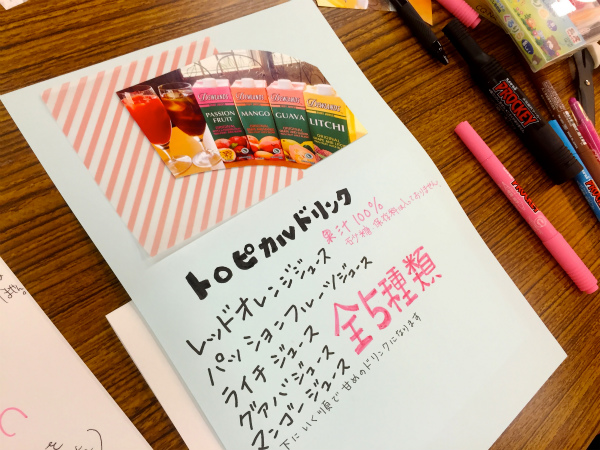 PASSION
FRUIT
MANGO
GUAVA
LITCHI
トロピカルドリンク
果汁100%
レッドオレンジジュース
パッションフルーツジュース
ライチジュース
グァバジュース
マンゴージュース
全5種類
下にいく順で甘めのドリンクになります
PROCKEY
ません。